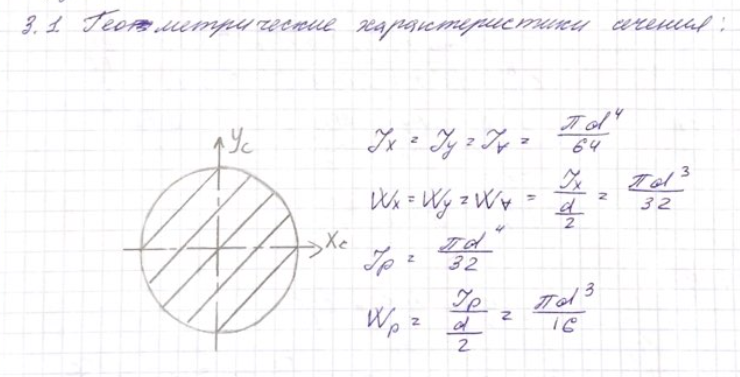 3.1 Геометрические характеристики сечения:
Yc
Xc
Jx = Jy = J∀ = πd⁴/64
Wx = Wy = W∀ = Jx/(d/2) = πd³/32
Jp = πd⁴/32
Wp = Jp/(d/2) = πd³/16